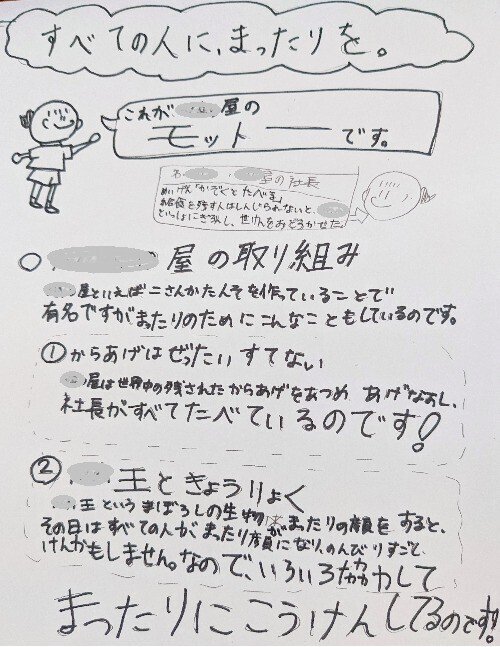 すべての人に、まったりを。
これが 屋の
モットーです。
名 屋の社長
給食を残す人はしんじられないと、
といっしょににぎわし、せけんをおどろかせた。
屋の取り組み
屋といえば二さんかたんそを作っていることで
有名ですがまったりのためにこんなこともしているのです。
①からあげはぜったいすてない
屋は世界中の残されたからあげをあつめ あげなおし、
社長がすべてたべているのです!
② 王ときょうりょく
王というまぼろしの生物がまったりの顔をすると、
その日はすべての人がまったり顔になり、のんびりすごし、
けんかもしません。なので、いろいろ協力して
まったりにこうけんしてるのです!